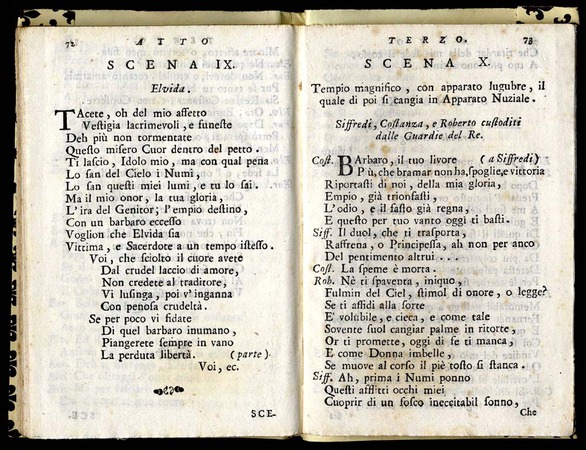 72 ATTO
SCENA IX.
Elvida.
TAcete, oh del mio affetto
Vestigia lacrimevoli, e funeste
Deh più non tormentate
Questo misero Cuor dentro del petto.
Ti lascio, Idolo mio, ma con qual pena
Lo san del Cielo i Numi,
Lo san questi miei lumi, e tu lo sai.
Ma il mio onor, la tua gloria,
L'ira del Genitor; l'empio destino,
Con un barbaro eccesso
Voglion che Elvida sia
Vittima, e Sacerdote a un tempo istesso.
Voi, che sciolto il cuore avete
Dal crudel laccio di amore,
Non credete al traditore,
Vi lusinga, poi v'inganna
Con penosa crudeltà.
Se per poco vi fidate
Di quel barbaro inumano,
Piangerete sempre in vano
La perduta libertà. (parte)
Voi, ec.
SCE-
TERZO. 73
SCENA X.
Tempio magnifico, con apparato lugubre, il
quale di poi si cangia in Apparato Nuziale.
Siffredi, Costanza, e Roberto custoditi
dalle Guardie del Re.
Cost. BArbaro, il tuo livore (a Siffredi)
Più, che bramar non ha, spoglie, e vittoria
Riportasti di noi, della mia gloria,
Empio, già trionfasti,
L'odio, e il fasto già regna,
E questo per tuo vanto oggi ti basti.
Siff. Il duol, che ti trasporta,
Raffrena, o Principessa, ah non per anco
Del pentimento altrui ...
Cost. La speme è morta.
Rob. Nè ti spaventa, iniquo,
Fulmin del Ciel, stimol di onore, o legge?
Se ti affidi alla sorte
E' volubile, e cieca, e come tale
Sovente suol cangiar palme in ritorte,
Or ti promette, oggi di fe ti manca,
E come Donna imbelle,
Se muove al corso il piè tosto si stanca.
Siff. Ah, prima i Numi ponno
Questi afflitti occhi miei
Cuoprir di un fosco ineccitabil sonno,
Che